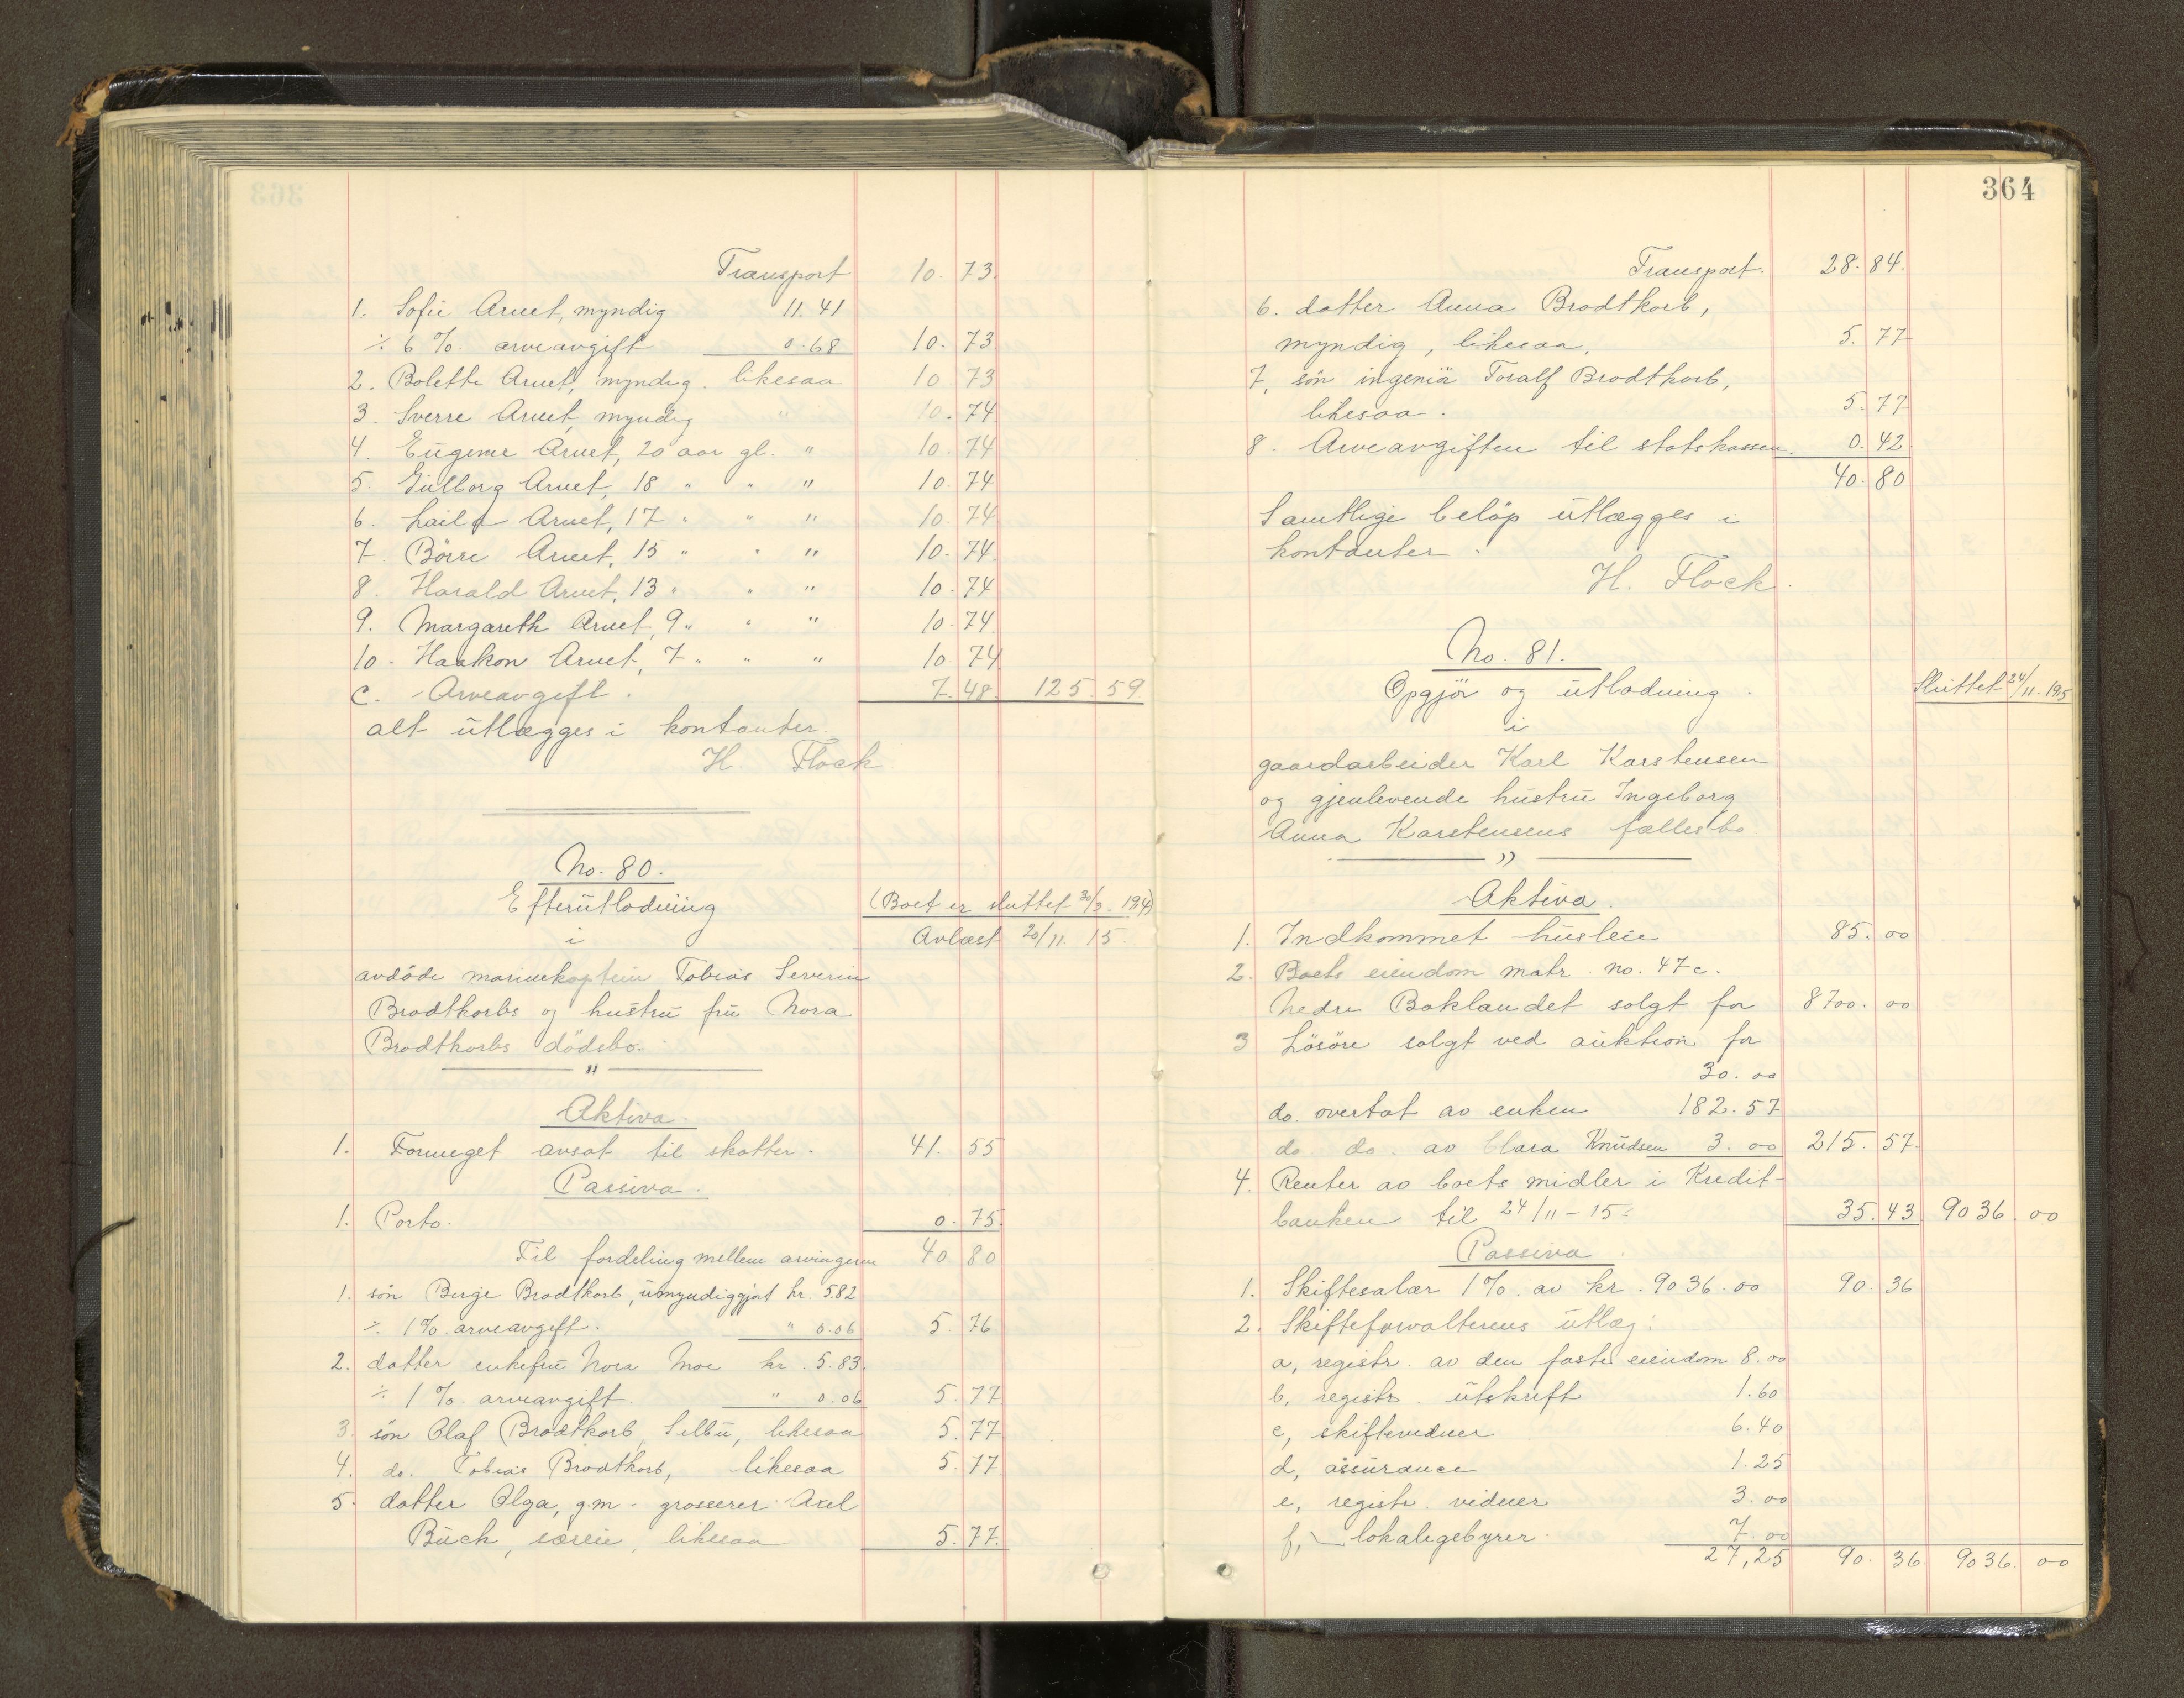 Transport 10. 73.
1. Sofie Aruet, myndig 11. 41
÷ 6 % arveavgift 0.68 10. 73
2. Bolette Aruet, myndig. likesaa 10 73
3. Sverre Aruet, myndig " 10. 74
4. Eugenie Aruet, 20 aar gl. " 10. 74
5. Gulborg Aruet, 18 " " " 10. 74
6. Laila Aruet, 17 " " " 10. 74
7 Börre Aruet, 15 " " " 10. 74
8. Harald Aruet, 13 " " " 10. 74
9. Margareth Aruet, 9 " " " 10. 74
10. Haakon Aruet, 7 " " " 10 74
c. Arveavgift. 7. 48. 125. 59
alt utlægges i kontanter.
H. Flock
No. 80.
Efterutlodning (Boet er sluttet 30/3. 1914)
i Avlæst 20/11. 15.
avdöde marinekaptein Tobias Severin
Brodtkorbs og hustru fru Nora
Brodtkorbs dödsbo.
"
Aktiva.
1. Formeget avsat til skatter. 41. 55
Passiva.
1. Porto. 0. 75
Til fordeling mellem arvingerne 40 80
1. sön Berge Brodtkorb, umyndiggjort kr. 5.82
÷ 1 % arveavgift. " 0.06 5. 76
2. datter enkefru Nora Moe kr. 5.83.
÷ 1 % arveavgift. " 0.06 5. 77
3. sön Olaf Brodtkorb, Selbu, likesaa 5. 77
4. do. Tobias Brodtkorb, likesaa 5. 77
5. datter Olga, g.m. grosserer Axel
Buck, særeie, likesaa 5. 77.
364
Transport. 28. 84.
6. datter Anna Brodtkorb,
myndig, likesaa, 5. 77
7. sön ingeniör Toralf Brodtkorb,
likesaa. 5. 77
8. Arveavgiften til statskassen. 0. 42
40. 80
Samtlige belöp utlægges i
kontanter.
H. Flock.
No. 81.
Opgjör og utlodning. Sluttet 24/11. 1915
i
gaardarbeider Karl Karstensen
og gjenlevende hustru Ingeborg
Anna Karstensens fællesbo.
"
Aktiva.
1. Indkommet husleie 85. 00
2. Boets eiendom matr. no. 47c.
Nedre Baklandet solgt for 8700. 00
3 Lösöre solgt ved auktion for
30. 00
do. overtat av enken 182. 57
do do. av Clara Knudsen 3. 00 215. 57.
4. Renter av boets midler i Kredit-
banken til 24/11 - 15 35. 43 9036 00
Passiva.
1. Skiftesalær 1 % av kr. 9036.00 90. 36
2. Skifteforvalterens utlæg:
a, registr. av den faste eiendom 8.00
b, registr. utskrift 1.60
c, skiftevidner 6.40
d, assurance 1.25
e, registr. vidner 3.00
f, lokalegebyrer. 7.00
27,25 90. 36 9036. 00